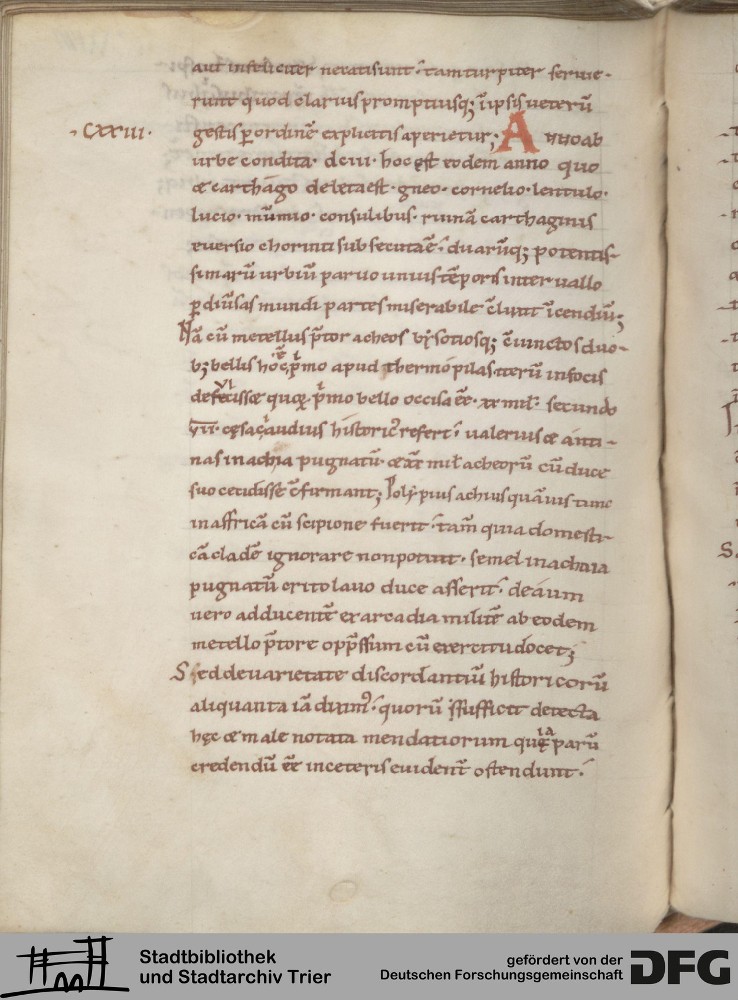 aut infeliciter necati sunt· tam turpiter seruie-
runt quod clarius promptiusq; ĩ ipsis ueterũ
·CXXIII· gestis ꝑ ordinẽ explicatis aperietur; Anno ab
urbe condita· dcvi· hoc est eodem anno quo
æ carthago deleta est· gneo· cornelio· lentulo·
lucio· mũmio· consulibus· ruinã carthaginis
euersio chorinti subsecuta ẽ· duarũq; potentis-
simarũ urbiũ paruo unius tẽporis interuallo
ꝑ diũsas mundi partes miserabile c̄luxit ĩcendiũ;
Nã cũ metellus p̄tor acheos
b; bellis hoc ẽ p̄mo apud thermopilas iterũ in focis
p̄mo bello occisa ẽẽ· xx mil· secundo
vii· claudius historic᾿ refert· ualerius æ anti-
nas in achia pugnatũ· æ xx mil acheorũ cũ duce
suo cecidisse c̄firmant; Polypius achius quãuis tunc
in affricã cũ scipione fuerit· tam̃ quia domesti-
cã cladẽ ignorare non potuit· semel in achaia
pugnatũ critolauo duce asserit· deaum
uero adducentẽ ex arcadia militẽ ab eodem
metello p̄tore opp̄ssum cũ exercitu docet;
Sed de uarietate discordantiũ historicorũ
aliquanta iã diximꝰ· quorũ sufficit detecta
hęc æ male notata mendatiorum quia parũ
credendũ ẽẽ in ceteris euident̃ ostendunt·
Stadtbibliothek
und Stadtarchiv Trier
gefördert von der
Deutschen Forschungsgemeinschaft
DFG